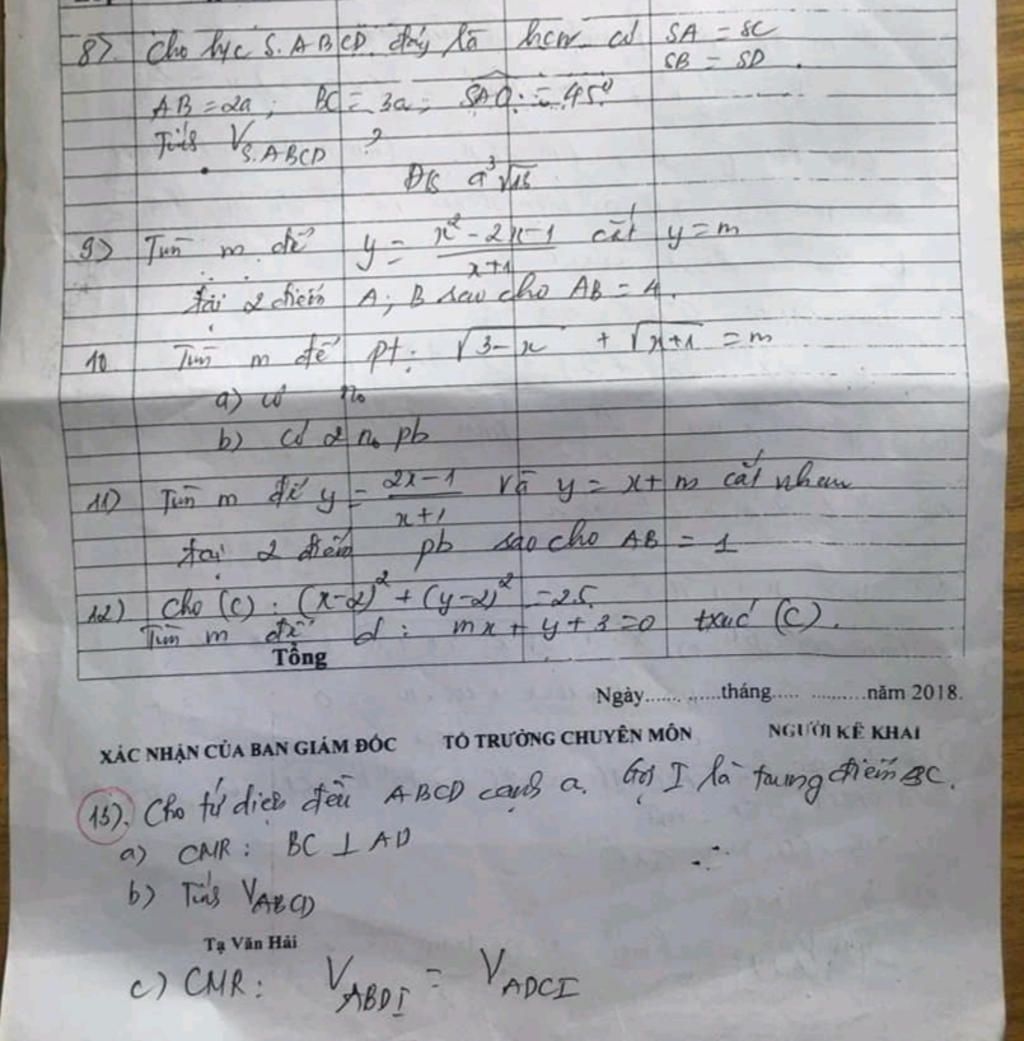 8). Cho h/c S.ABCD. đáy là hcn. có SA = SC
SB = SD.
AB = 2a; BC = 3a; SAO = 45⁰
Tính V_{S.ABCD} ?
ĐS a³√13
9) Tìm m để y = \frac{x² - 2x - 1}{x + 1} cắt y = m
tại 2 điểm A; B sao cho AB = 4.
10 Tìm m để pt: √(3 - x) + √(x + 1) = m
a) có n₀
b) có 2 n₀ pb
11) Tìm m để y = \frac{2x - 1}{x + 1} và y = x + m cắt nhau
tại 2 điểm pb sao cho AB = 1
12) Cho (C): (x-2)² + (y-2)² = 25.
Tìm m để d: mx + y + 3 = 0 txúc (C).
Tổng
Ngày....... ......tháng..... ..........năm 2018.
XÁC NHẬN CỦA BAN GIÁM ĐỐC TỔ TRƯỞNG CHUYÊN MÔN NGƯỜI KÊ KHAI
13). Cho tứ diện đều ABCD cạnh a. Gọi I là trung điểm BC.
a) CMR: BC ⊥ AD
b) Tính V_{ABCD}
Tạ Văn Hải
c) CMR: V_{ABDI} = V_{ADCI}